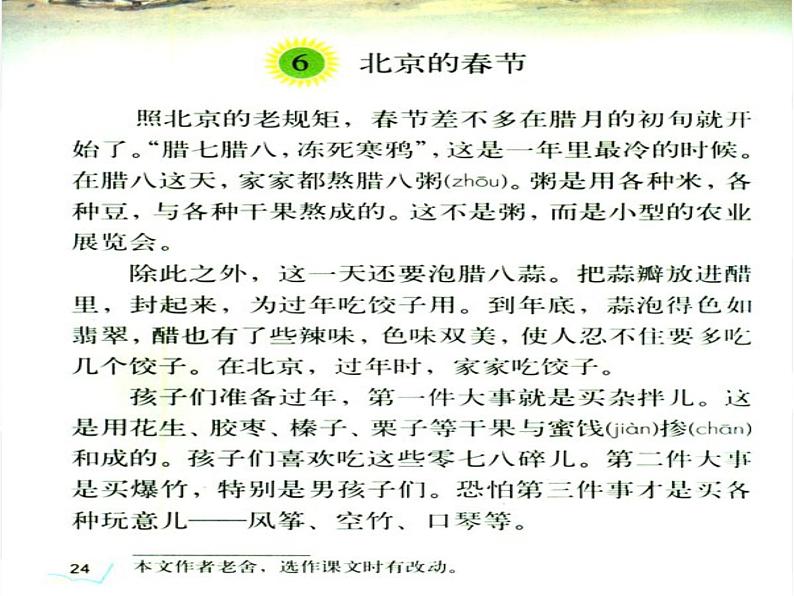 6 北京的春节
照北京的老规矩，春节差不多在腊月的初旬就开
始了。“腊七腊八，冻死寒鸦”，这是一年里最冷的时候。
在腊八这天，家家都熬腊八粥(zhōu)。粥是用各种米，各
种豆，与各种干果熬成的。这不是粥，而是小型的农业
展览会。
除此之外，这一天还要泡腊八蒜。把蒜瓣放进醋
里，封起来，为过年吃饺子用。到年底，蒜泡得色如
翡翠，醋也有了些辣味，色味双美，使人忍不住要多吃
几个饺子。在北京，过年时，家家吃饺子。
孩子们准备过年，第一件大事就是买杂拌儿。这
是用花生、胶枣、榛子、栗子等干果与蜜饯(jiàn)掺(chān)
和成的。孩子们喜欢吃这些零七八碎儿。第二件大事
是买爆竹，特别是男孩子们。恐怕第三件事才是买各
种玩意儿——风筝、空竹、口琴等。
24 本文作者老舍，选作课文时有改动。